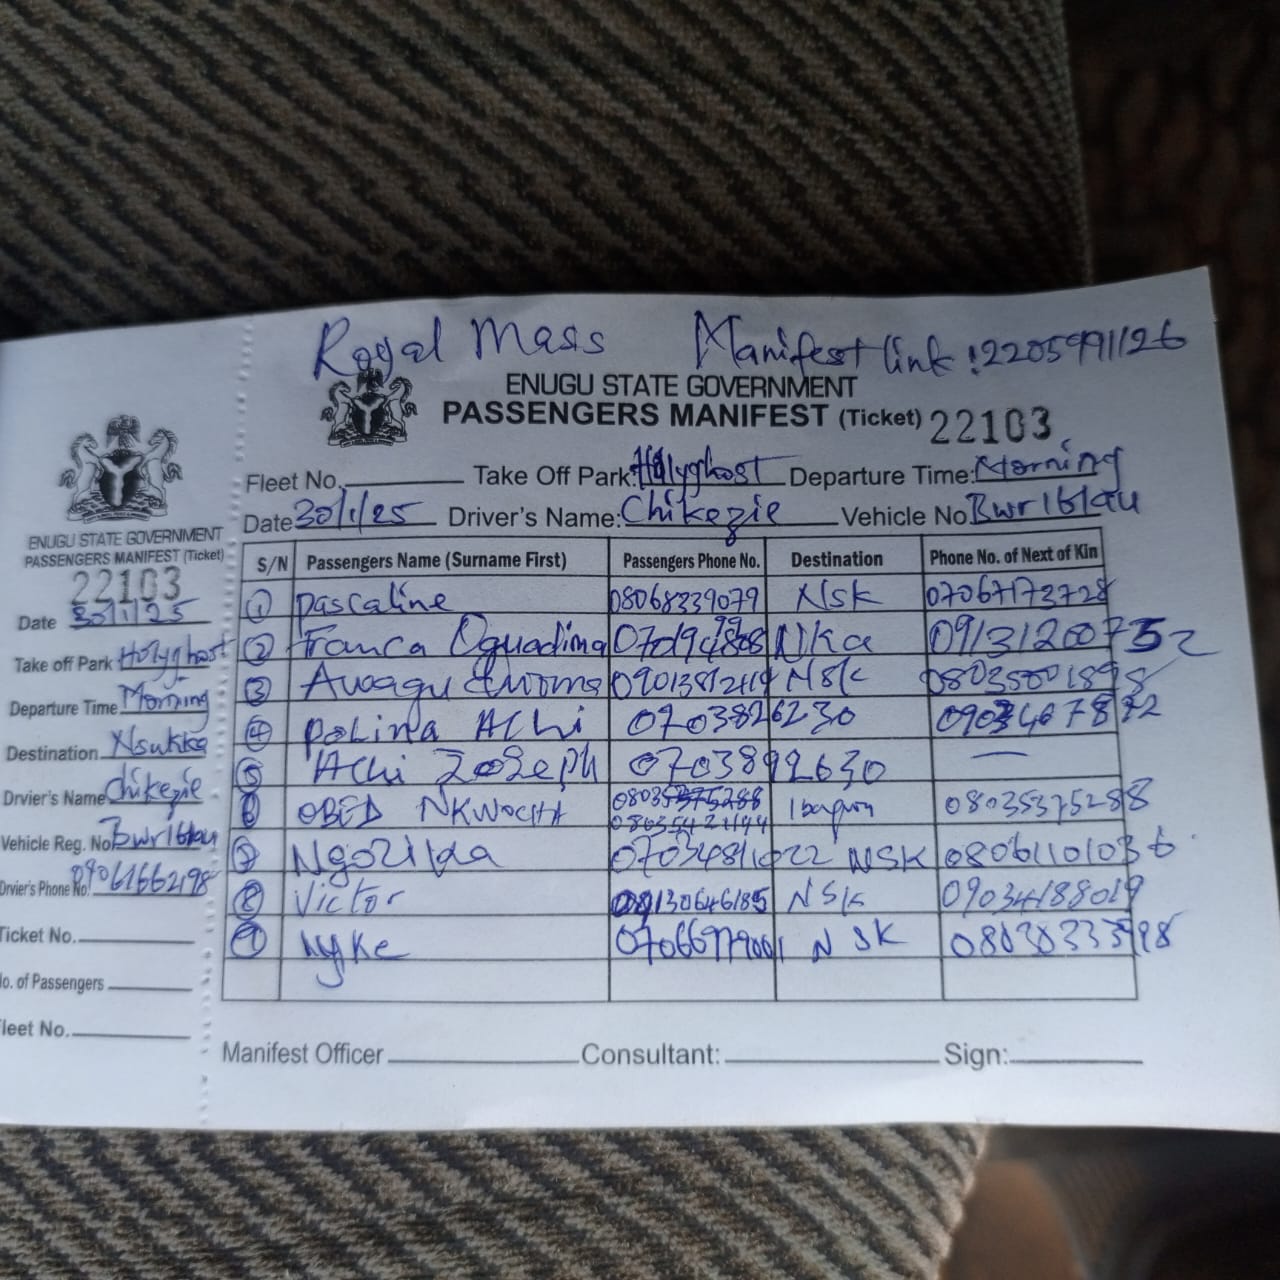 Royal Mass Manifest link: 2205991126
ENUGU STATE GOVERNMENT
PASSENGERS MANIFEST (Ticket) 22103
Fleet No. Take Off Park: Holyghost Departure Time: Morning
Date 30/1/25 Driver's Name: Chikezie Vehicle No. Bwr161au
S/N Passengers Name (Surname First) Passengers Phone No. Destination Phone No. of Next of Kin
1 Pascaline 08068339079 Nsk 07067173728
2 Franca Oguadima NKa 09131200752
3 Awagu NSK
4 Polina Achi 0703826230
5 Achi Joseph 07038992630 —
6 OBED NKWOCHA 08035375288
08035421194
7 Ngozi NSK 08061101036
8 Victor 08130646185 NSK 09034188019
9 NSK
Manifest Officer Consultant: Sign:
ENUGU STATE GOVERNMENT
PASSENGERS MANIFEST (Ticket)
22103
Date 30/1/25
Take off Park Holyghost
Departure Time Morning
Destination Nsukka
Drvier's Name Chikezie
Vehicle Reg. No. Bwr161au
Drvier's Phone No. 09061662198
Ticket No.
No. of Passengers
Fleet No.